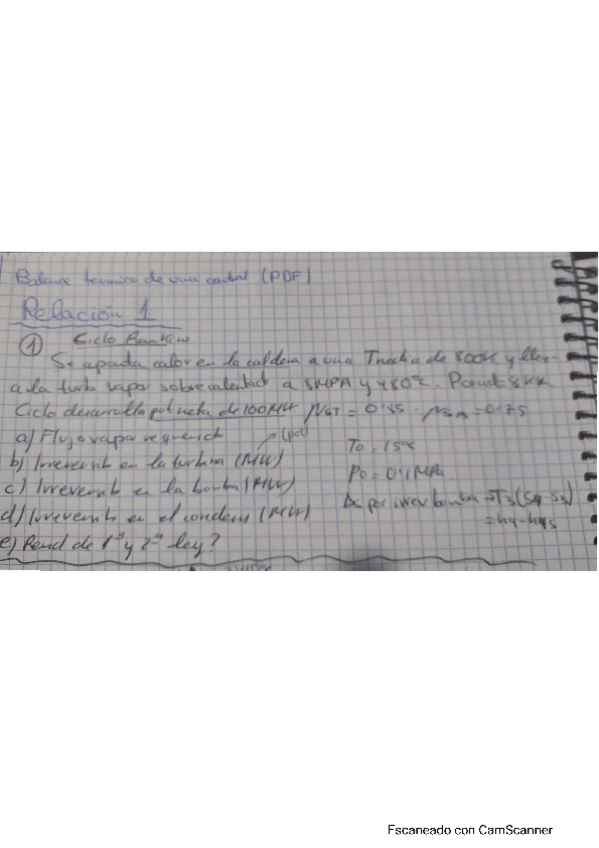 Balance termico de una central (PDF)
Relación 1
① Ciclo Rankine
Se aporta calor en la caldera a una T media de 800K y llega
a la turb vapor sobrecalentado a 8MPA y 480ºC. Pcond 8 KPa
Ciclo desarrolla pot neta de 100MW ηST = 0'85 . ηSA = 0'75
a) Flujo vapor requerido
(pot)
To = 15ºC
b) Irreversib en la turbina (MW)
Po = 0'1 MPa.
c) Irreversib en la bomba (MW)
Δs por irrev bomba = T3(S4-S3)
d) Irreversib en el condens (MW)
= h4-h4s
e) Rend de 1ª y 2ª ley?
Escaneado con CamScanner